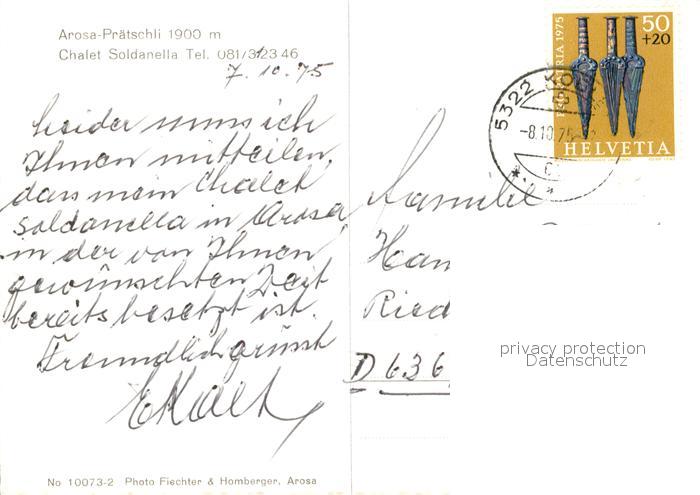 Arosa-Prätschli 1900 m
Chalet Soldanella Tel. 081/31 23 46
7.10.75
Leider muss ich
Ihnen mitteilen,
dass mein Chalet
Soldanella in Arosa
in der von Ihnen
gewünschten Zeit
bereits besetzt ist.
Freundlich grüsst
No 10073-2 Photo Fiechter & Homberger, Arosa
PRO PATRIA 1975
50
+20
HELVETIA
5322
-8.10.75
Familie
Han
Ried
D 636
privacy protection
Datenschutz